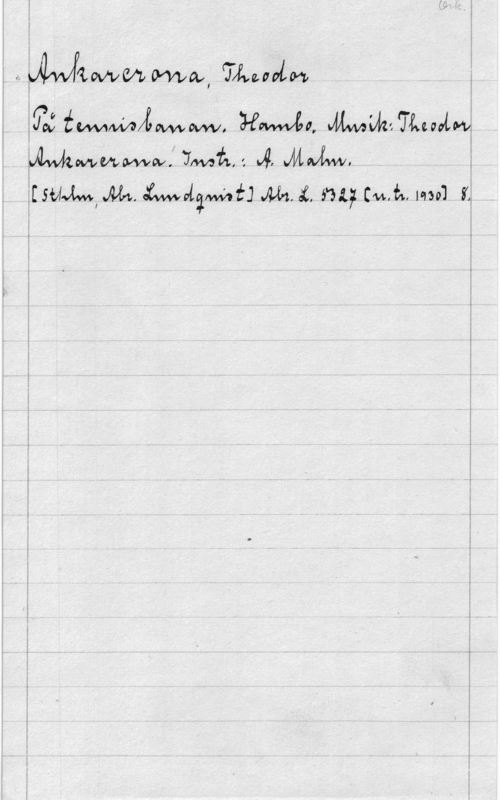 Ork.
Ankarcrona, Theodor
På tennisbanan. Hambo. Musik: Theodor
Ankarcrona. Instr.: A. Malm.
[Sthlm, Abr. Lundqvist] Abr. L. 5327 [u.tr. 1930] 8.